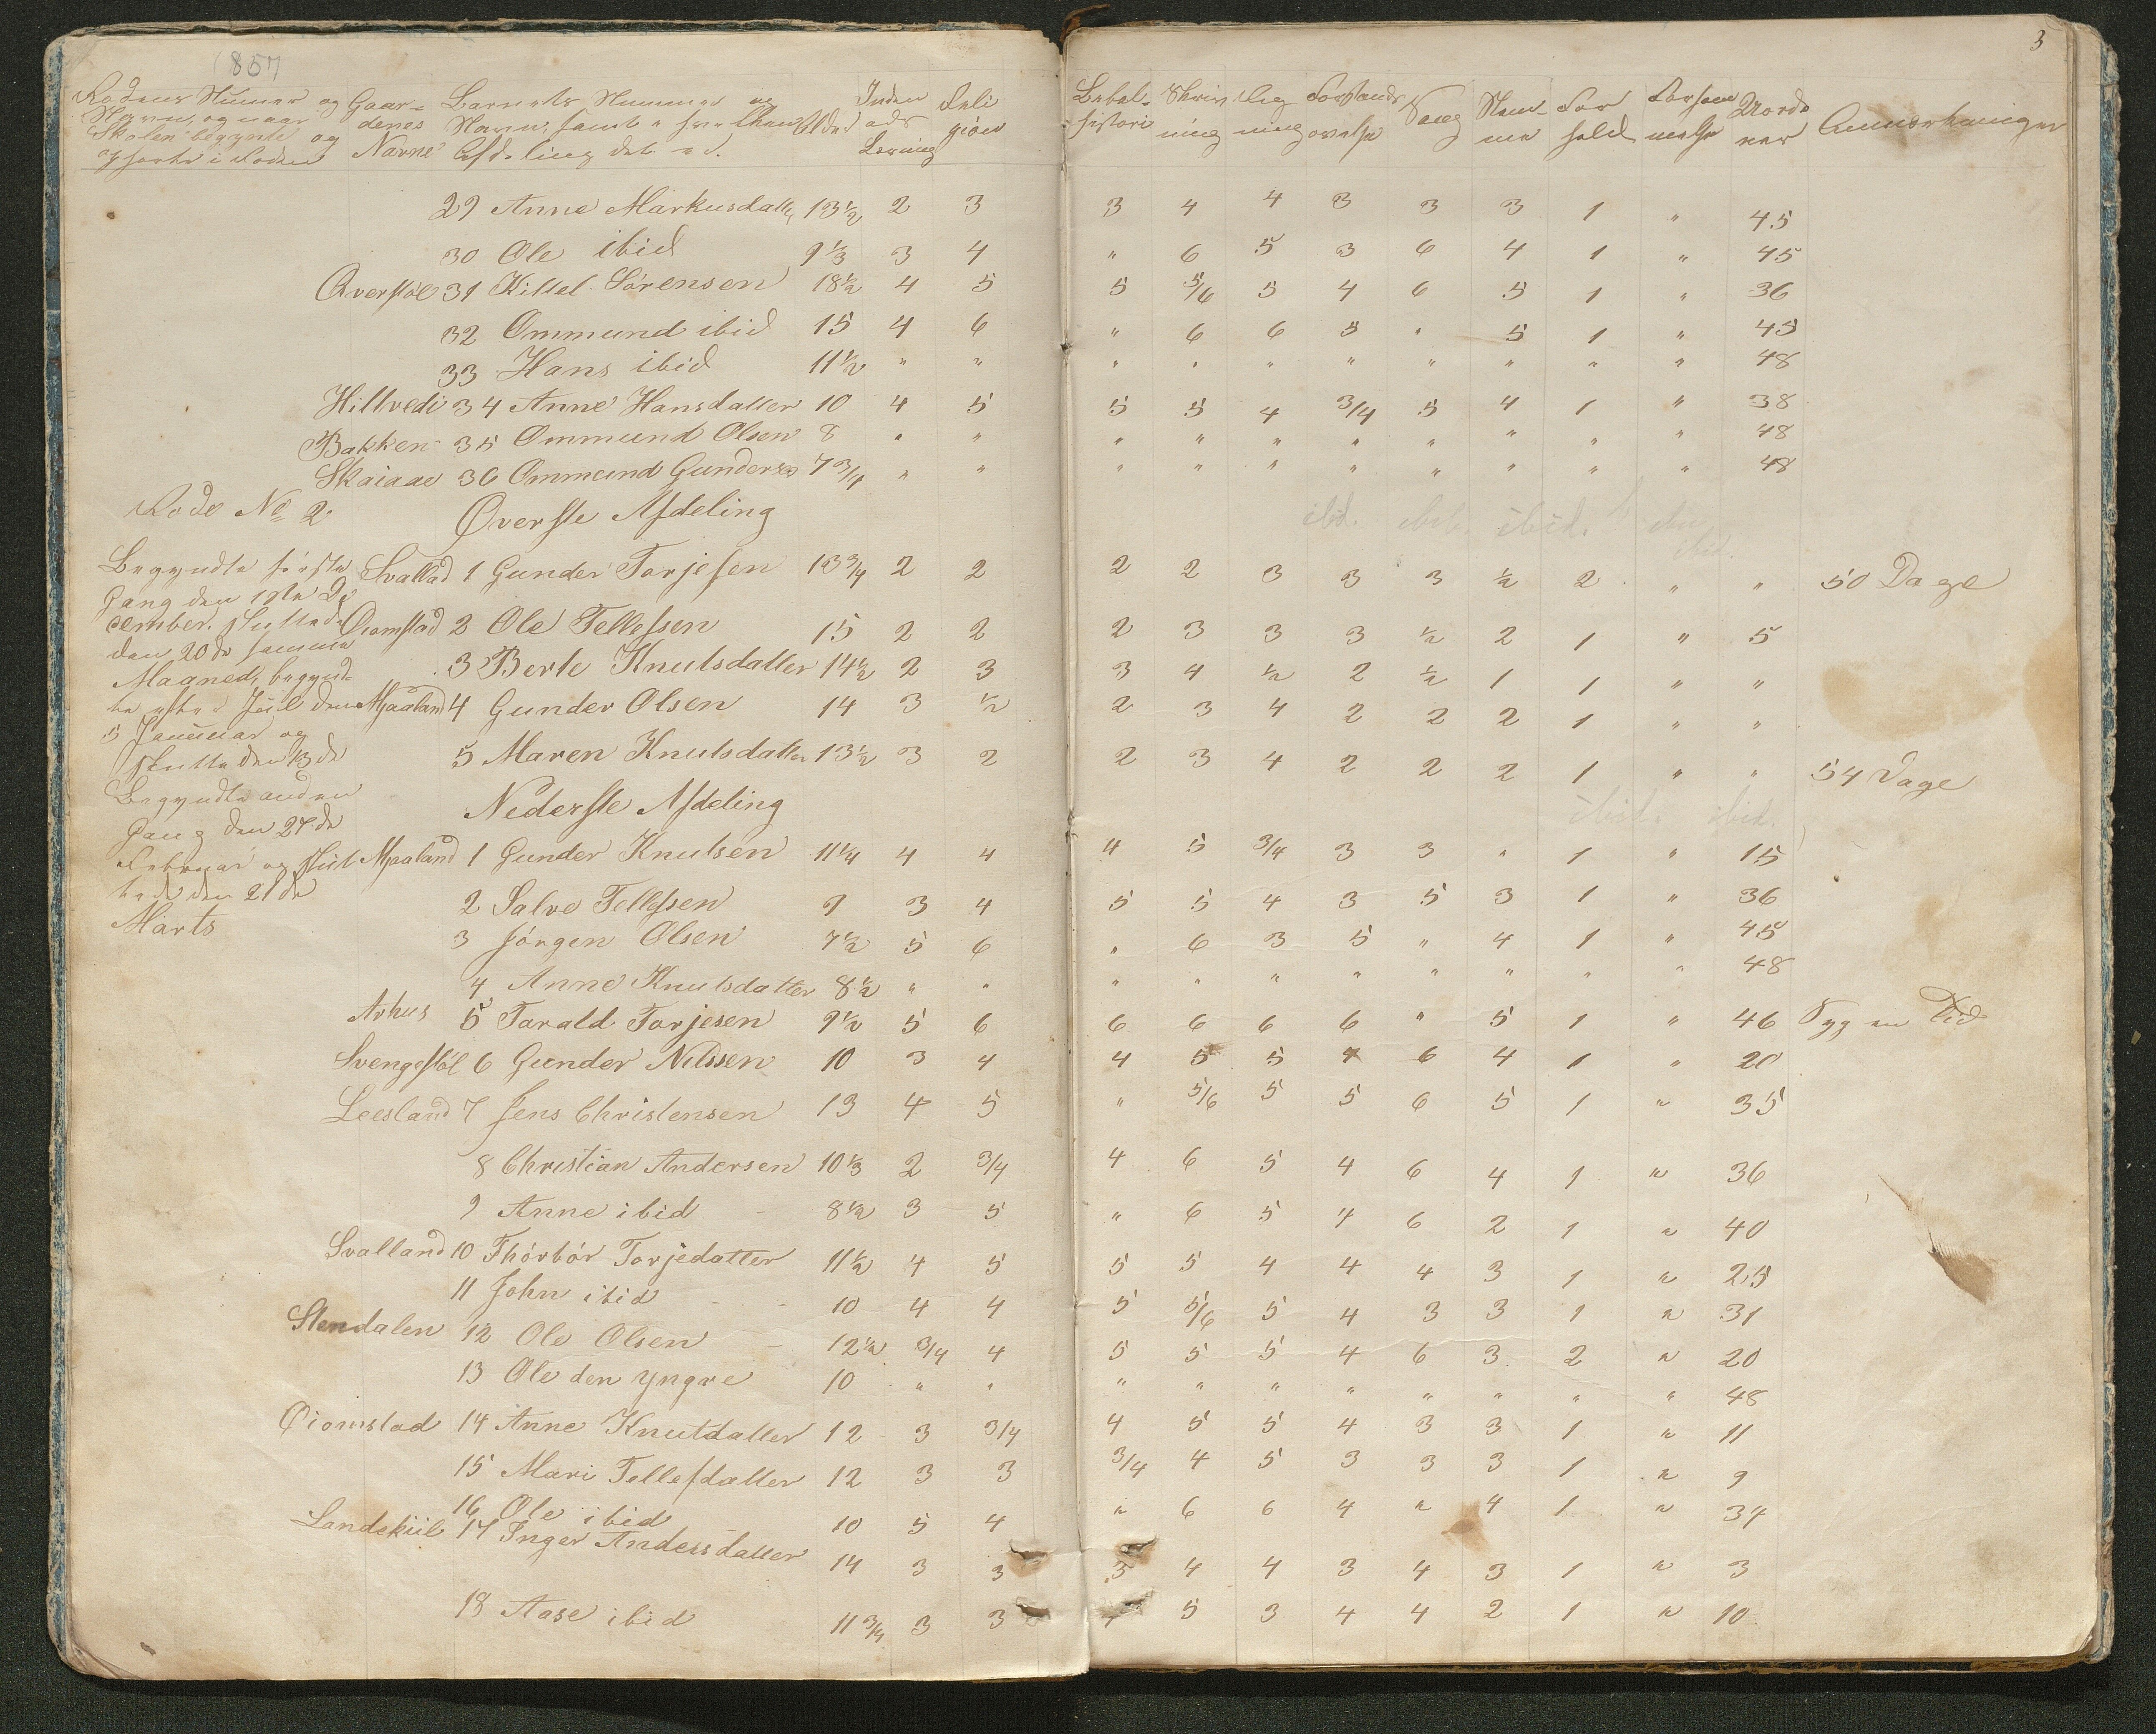 1857
3
Rodens Numer og Gaar- Barnets Nummer og Alder Inden Reli
Navn, og naar denes Navn, samt i hvilken ads gion
Skolen begynte og Navne Afdeling det er. Læsning
ophørte i Roden
Bibel- Skriv Reg Forstands Sang Stem- For Forsøm Uorde Anmerkninger
historie ning ning øvelse me hold melse ner
29 Anne Markusdatter 13½ 2 3 3 4 4 3 3 3 1 " 45
30 Ole ibid 9⅓ 3 4 " 6 5 3 6 4 1 " 45
Qverstøl 31 Kittel Sørensen 18½ 4 5 5 5/6 5 4 6 5 1 " 36
32 Ommund ibid 15 4 6 " 6 6 5 " 5 1 " 45
33 Hans ibid 11½ " " " " " " " " " " 48
Hiltvedt 34 Anne Hansdatter 10 4 5 5 5 4 3/4 5 4 1 " 38
Bakken 35 Ommund Olsen 8 " " " " " " " " " " 48
Skaiaae 36 Ommund Gundersen 7¾ " " " " " " " " " " 48
Rode No 2 Øverste Afdeling
ibid. ibid. ibid. ibid.
Begyndte første Svallad 1 Gunder Torjesen 13¾ 2 2 2 2 3 3 3 ½ 2 " " 50 Dage
Gang den 1ste De
cember. sluttede Øiomstad 2 Ole Tellefsen 15 2 2 2 3 3 3 ½ 2 1 " 5
den 20de samme
Maaned, begynd- 3 Berte Knutsdatter 14½ 2 3 3 4 ½ 2 ½ 1 1 " "
te efter Juul den Mjaaland 4 Gunder Olsen 14 3 ½ 2 3 4 2 2 2 1 " "
5 Januar og
slutte den 13de 5 Maren Knutsdatter 13½ 3 2 2 3 4 2 2 2 1 " " 54 Dage
Begyndte anden Nederste Afdeling
ibid. ibid.
Gang den 27de
Februar og slut Mjaaland 1 Gunder Knutsen 11¼ 4 4 4 5 3/4 3 3 " 1 " 15
tede den 21de 2 Salve Tellefsen 9 3 4 5 5 4 3 5 3 1 " 36
Marts 3 Jørgen Olsen 7½ 5 6 " 6 3 5 " 4 1 " 45
4 Anne Knutsdatter 8½ " " " " " " " " " " 48
Arhus 5 Tarald Torjesen 9½ 5 6 6 6 6 6 " 5 1 " 46 Syg en Tid
Svengestøl 6 Gunder Nilssen 10 3 4 4 5 5 4 6 4 1 " 20
Leesland 7 Jens Christensen 13 4 5 " 5/6 5 5 6 5 1 " 35
8 Christian Andersen 10⅓ 2 3/4 4 6 5 4 6 4 1 " 36
9 Anne ibid 8½ 3 5 " 6 5 4 6 2 1 " 40
Svalland 10 Thórbór Torjedatter 11½ 4 5 5 5 4 4 4 3 1 " 25
11 John ibid 10 4 4 5 5/6 5 4 3 3 1 " 31
Stendalen 12 Ole Olsen 12½ 3/4 4 5 5 5 4 6 3 2 " 20
13 Ole den yngre 10 " " " " " " " " " " 48
Øiomstad 14 Anne Knutdatter 12 3 3/4 4 5 5 4 3 3 1 " 11
15 Mari Tellefdatter 12 3 3 3/4 4 5 3 3 3 1 " 9
16 Ole ibid 10 5 4 " 6 6 4 " 4 1 " 34
Landskiil 17 Inger Andersdatter 14 3 3 3 4 4 3 4 3 1 " 3
18 Aase ibid 11¾ 3 3 4 5 3 4 4 2 1 " 10